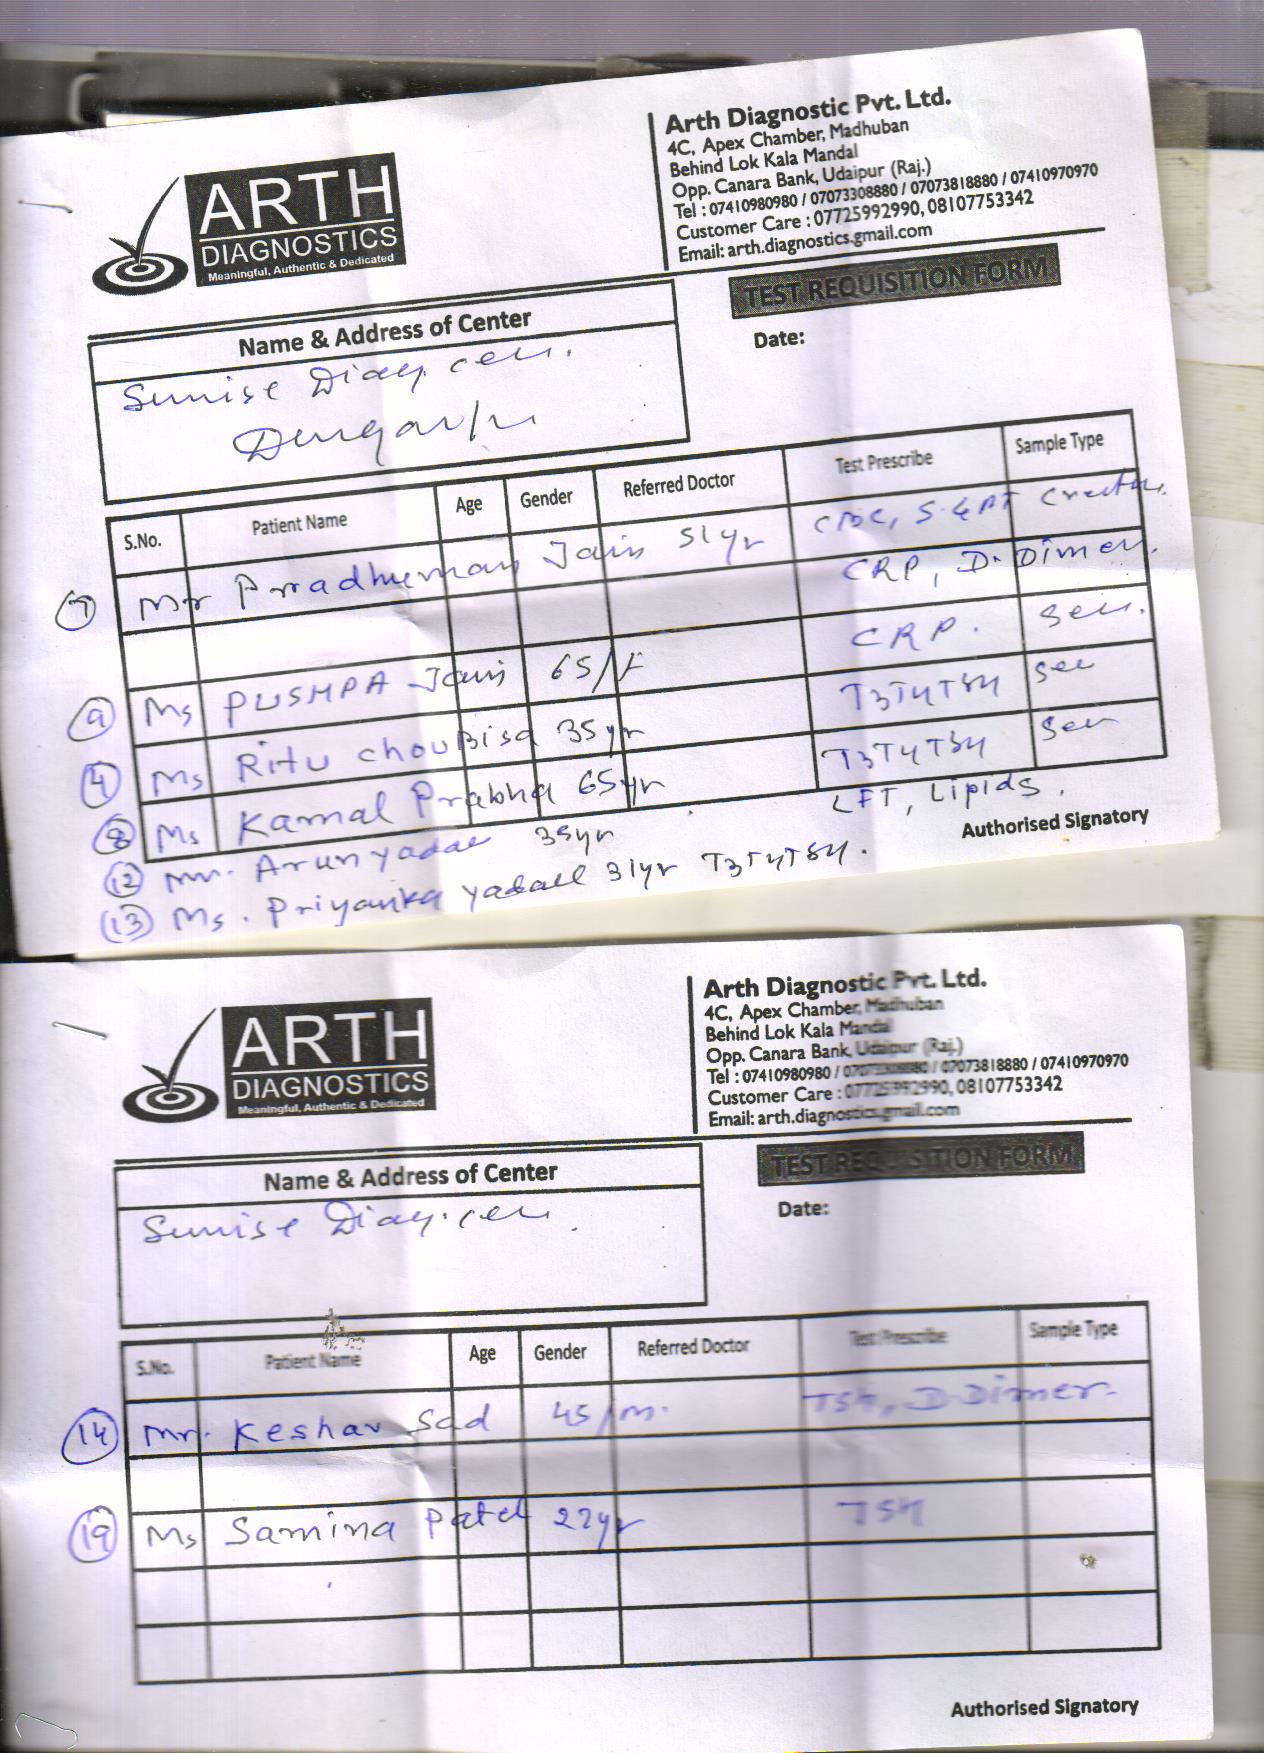 ARTH
DIAGNOSTICS
Meaningful, Authentic & Dedicated
Arth Diagnostic Pvt. Ltd.
4C, Apex Chamber, Madhuban
Behind Lok Kala Mandal
Opp. Canara Bank, Udaipur (Raj.)
Tel : 07410980980 / 07073308880 / 07073818880 / 07410970970
Customer Care : 07725992990, 08107753342
Email: arth.diagnostics.gmail.com
TEST REQUISITION FORM
Date:
Name & Address of Center
Sunrise Diag. cen.
S.No. Patient Name Age Gender Referred Doctor Test Prescribe Sample Type
7 Mr Pradhuman Jain 51yr CBC, S.GPT
CRP, D.Dimer.
9 Ms PUSHPA Jain 65/F CRP. Seu.
4 Ms Ritu chouBisa 35yr T3T4TSH
8 Ms Kamal Prabha 65yr T3T4TSH
12 Mr. Arun yadav 35yr LFT, Lipids.
13 Ms. Priyanka yadav 31yr T3T4TSH.
Authorised Signatory
ARTH
DIAGNOSTICS
Meaningful, Authentic & Dedicated
Arth Diagnostic Pvt. Ltd.
4C, Apex Chamber, Madhuban
Behind Lok Kala Mandal
Opp. Canara Bank, Udaipur (Raj.)
Tel : 07410980980 / 07073308880 / 07073818880 / 07410970970
Customer Care : 07725992990, 08107753342
Email: arth.diagnostics.gmail.com
TEST REQUISITION FORM
Date:
Name & Address of Center
Sunrise Diag. cen.
S.No. Patient Name Age Gender Referred Doctor Test Prescribe Sample Type
14 Mr. Keshav Sad 45/m. TSH, D.Dimer.
19 Ms Samina Patel 22yr TSH
Authorised Signatory